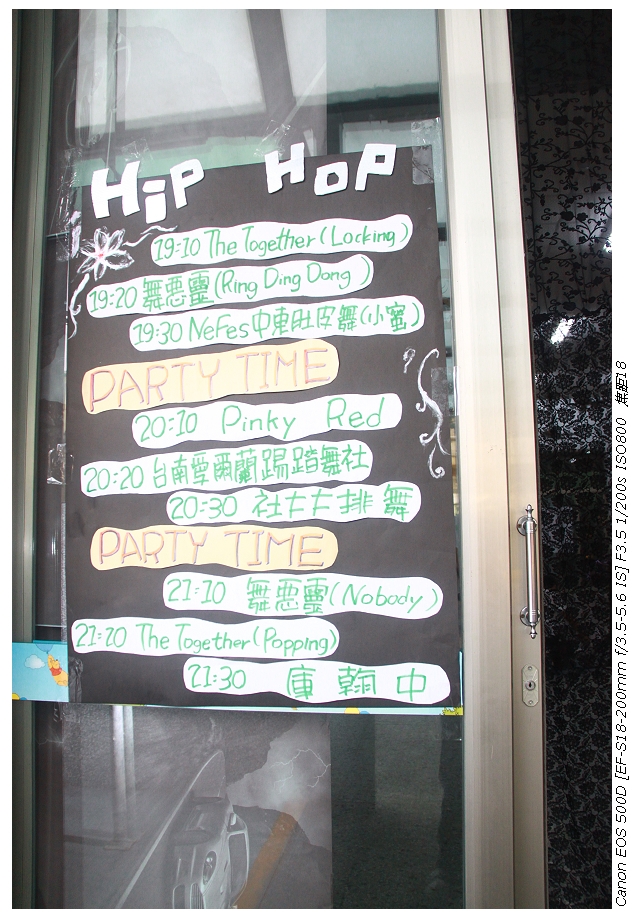 HiP HoP
19:10 The Together (Locking)
19:20 舞惡靈 (Ring Ding Dong)
19:30 NeFes中東肚皮舞(小蜜)
PARTY TIME
20:10 Pinky Red
20:20 台南愛爾蘭踢踏舞社
20:30 社ㄊㄊ排舞
PARTY TIME
21:10 舞惡靈(Nobody)
21:20 The Together (Popping)
21:30 庫翰中
Canon EOS 500D [EF-S18-200mm f/3.5-5.6 IS] F3.5 1/200s ISO800 焦距18